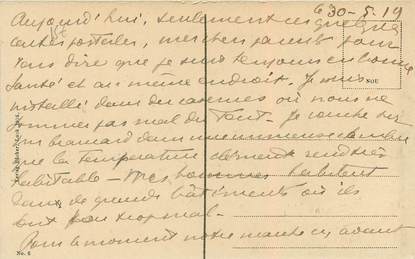 le 30-5.19
Aujourd'hui, seulement ces quelques
cartes postales, me
vous dire que je suis toujours en bonne
santé et au même endroit. Je suis
installé dans des casernes où nous ne
sommes pas mal du tout - Je couche sur
un brancard dans une immense
que la température clémente rend très
habitable - Mes hommes habitent
dans de grands bâtiments où ils
sont pas trop mal -
Pour le moment notre marche en avant
NOU
No. 6